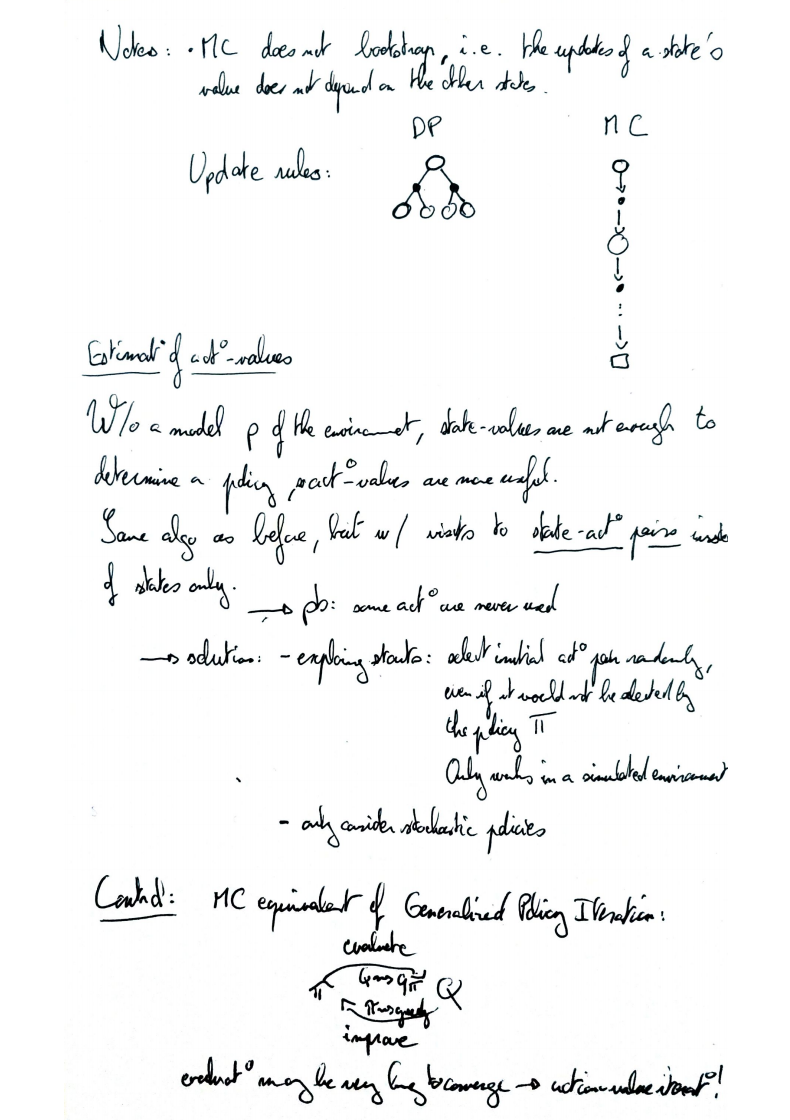 Notes: • MC does not bootstrap, i.e. the updates of a state's
value does not depend on the other states.
DP MC
Update rules:
Estimat° of act°-values
W/o a model p of the environment, state-values are not enough to
determine a policy, so act°-values are more useful.
Same algo as before, but w/ visits to state-act° pairs inste
of states only.
→ pb: some act° are never used
→ solution: - exploring starts: select initial act° pair randomly,
even if it would not be selected by
the policy π
Only works in a simulated environment
- only consider stochastic policies
Control: MC equivalent of Generalized Policy Iteration:
evaluate
Q → qπ
π Q
π → greedy
improve
evaluat° may be very long to converge → action value iterat°!